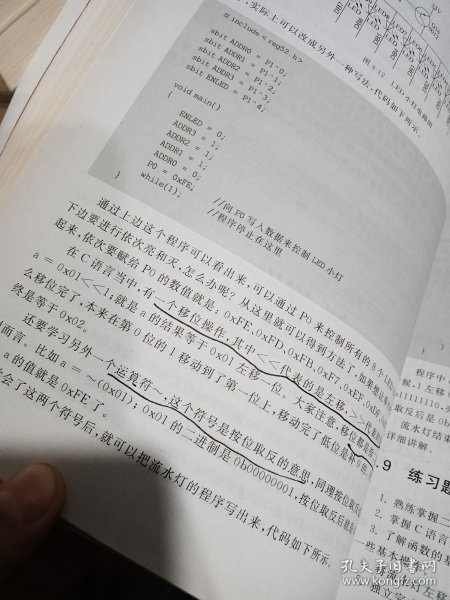 ,实际上可以改成另外一种写法,代码如下所示。
# include < reg52.h>
sbit ADDR0 = P1^0;
sbit ADDR1 = P1^1;
sbit ADDR2 = P1^2;
sbit ADDR3 = P1^3;
sbit ENLED = P1^4;
void main()
{
ENLED = 0;
ADDR3 = 1;
ADDR2 = 1;
ADDR1 = 1;
ADDR0 = 0;
P0 = 0xFE; //向 P0 写入数据来控制 LED 小灯
while(1); //程序停止在这里
}
通过上边这个程序可以看出来,可以通过 P0 来控制所有的 8 个 LED
下边要进行依次亮和灭,怎么办呢?从这里就可以得到方法了,如果想让
起来,依次要赋给 P0 的数值就是:0xFE、0xFD、0xFB、0xF7、0xEF、0xDF
在 C 语言当中,有一个移位操作,其中<<代表的是左移,>>代表
a = 0x01<<1;就是 a 的结果等于 0x01 左移一位。大家注意,移位都是
么移位完了,本来在第 0 位的 1 移动到了第一位上,移动完了低位是补 0 的
终是等于 0x02。
还要学习另外一个运算符~,这个符号是按位取反的意思,同理按位取反
而言。比如 a = ~(0x01);0x01 的二进制是 0b00000001,按位取反后就是
a 的值就是 0xFE 了。
会了这两个符号后,就可以把流水灯的程序写出来,代码如下所示。
程序中
候,1 左移
11111110,
取反后是 0b
流水灯结束
详细讲解。
.9 练习题
1. 熟练掌握二
2. 掌握 C 语言
3. 了解函数的基
些基本操
左移
独立完
孔夫子旧书网
www.kongfz.com